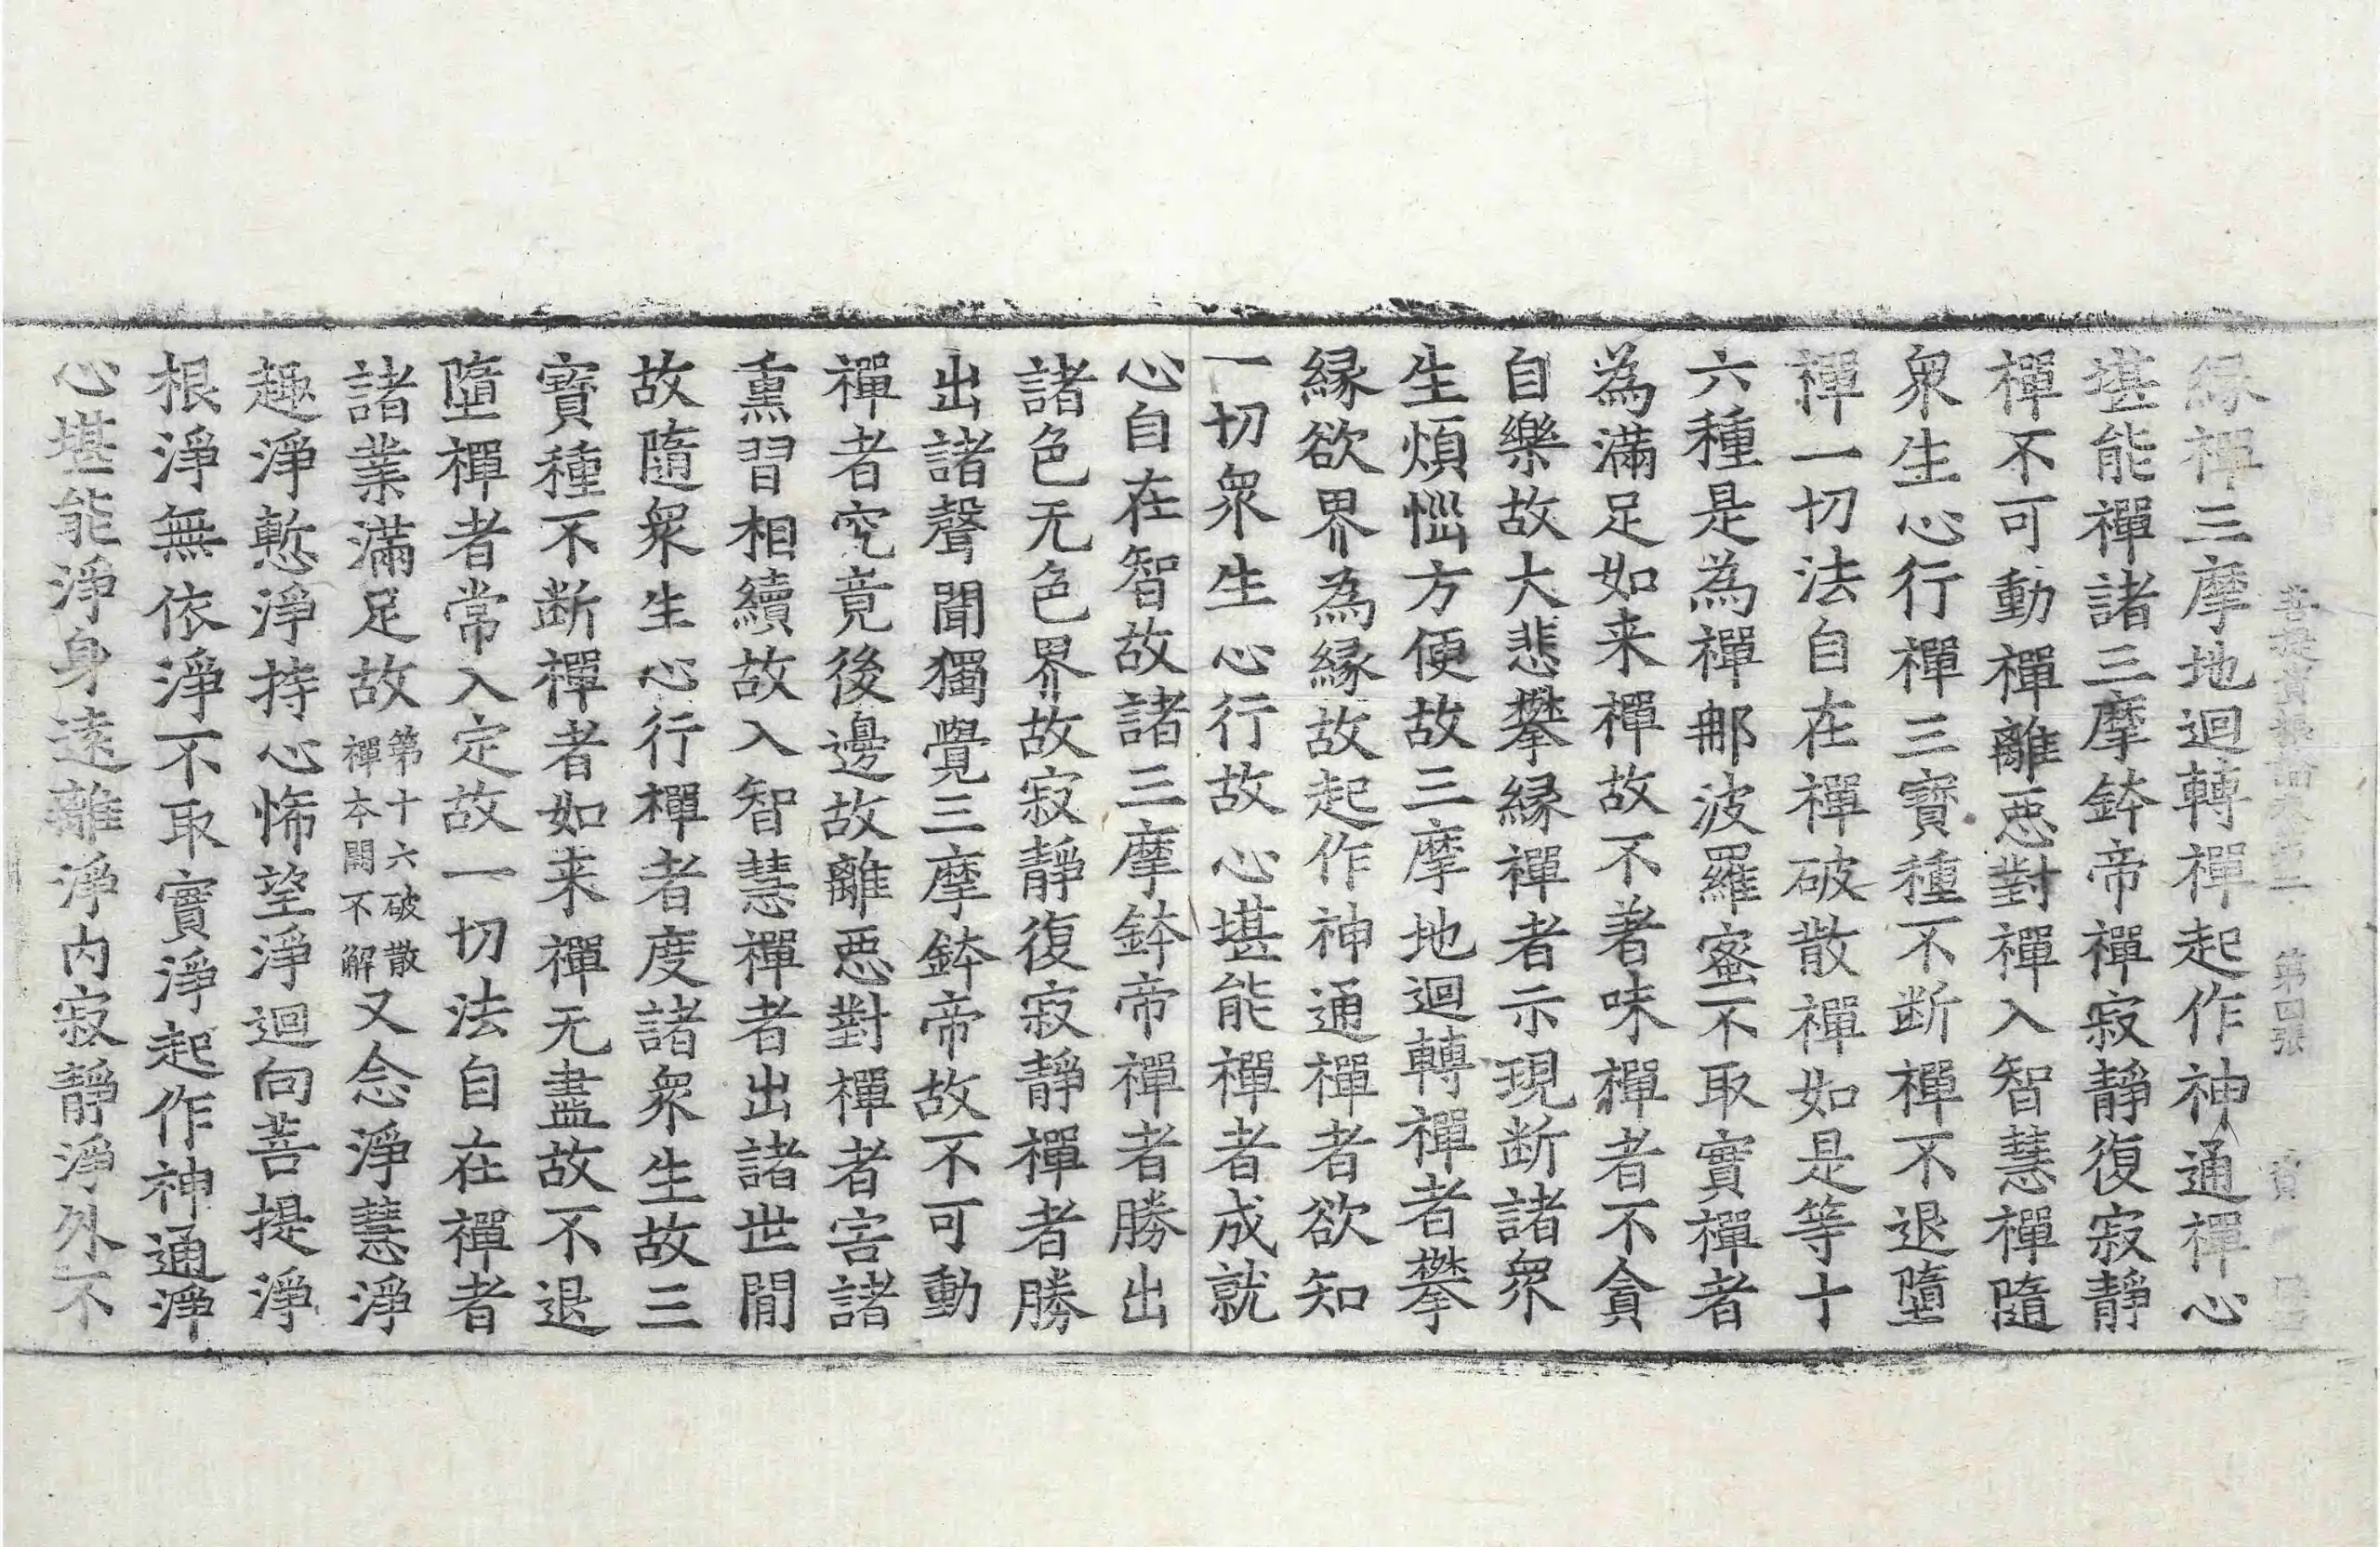 菩提資糧論卷第二 第四張 資
緣禪三摩地迴轉禪起作神通禪心
堪能禪諸三摩鉢帝禪寂靜復寂靜
禪不可動禪離惡對禪入智慧禪隨
衆生心行禪三寶種不斷禪不退墮
禪一切法自在禪破散禪如是等十
六種是為禪那波羅蜜不取實禪者
為滿足如来禪故不著味禪者不貪
自樂故大悲攀緣禪者示現断諸衆
生煩惱方便故三摩地迴轉禪者攀
緣欲界為緣故起作神通禪者欲知
一切衆生心行故心堪能禪者成就
心自在智故諸三摩鉢帝禪者勝出
諸色无色界故寂靜復寂靜禪者勝
出諸聲聞獨覺三摩鉢帝故不可動
禪者究竟後邊故離惡對禪者害諸
熏習相續故入智慧禪者出諸世間
故隨衆生心行禪者度諸衆生故三
寶種不断禪者如来禪无盡故不退
墮禪者常入定故一切法自在禪者
諸業滿足故第十六破散禪本闕不解又念淨慧淨
趣淨慙淨持心悕望淨迴向菩提淨
根淨無依淨不取實淨起作神通淨
心堪能淨身遠離淨內寂靜淨外不